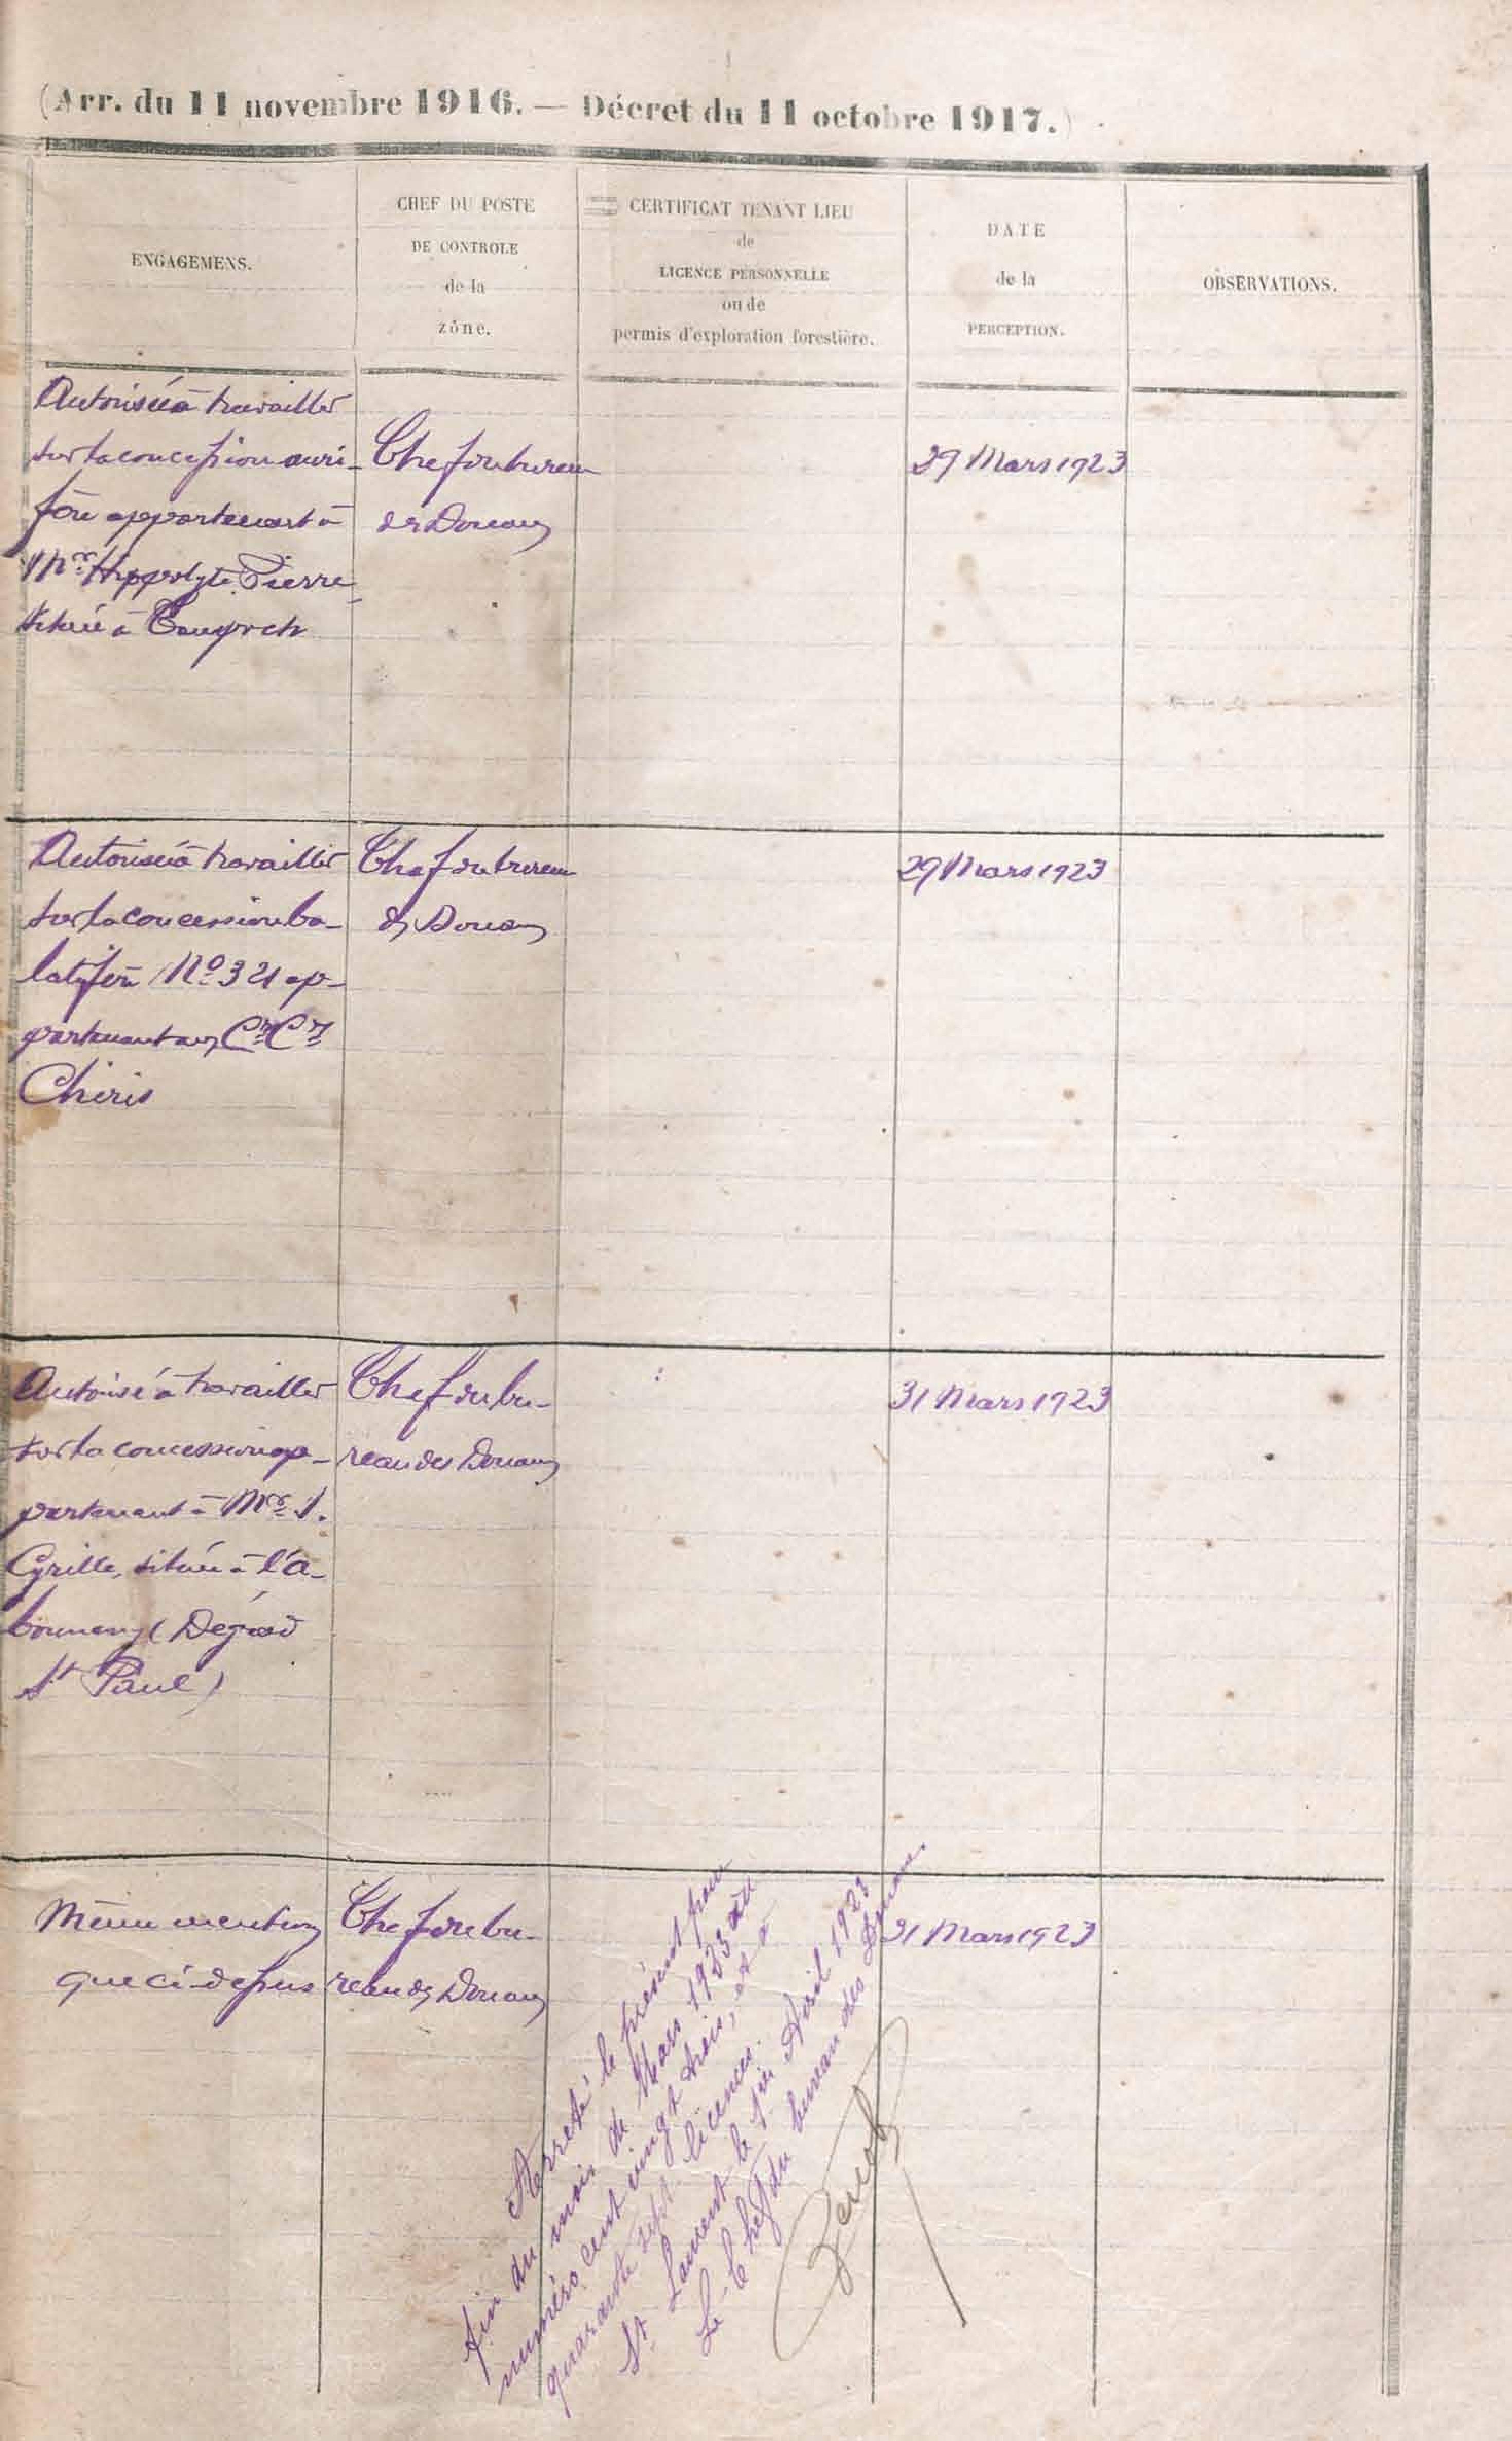 (Arr. du 11 novembre 1916. — Décret du 11 octobre 1917.)
ENGAGEMENS.
CHEF DU POSTE
DE CONTROLE
de la
zône.
CERTIFICAT TENANT LIEU
de
LICENCE PERSONNELLE
ou de
permis d'exploration forestière.
DATE
de la
PERCEPTION.
OBSERVATIONS.
Autorisée à travailler
sur la concession auri-
fère appartenant à
Mr Hippolyte Pierre
située à
Chef du bureau
des Douanes
29 Mars 1923
Autorisé à travailler
sur la concession ba-
latifère No 321 ap-
partenant aux
Chiris
Chef du bureau
des Douanes
29 Mars 1923
Autorisé à travailler
sur la concession ap-
partenant à Mr S.
Cyrille, située à l'a-
bounamy (Dégrad
St Paul)
Chef du bu-
reau des Douanes
31 Mars 1923
Même mention
que ci-dessus
Chef du bu-
reau des Douanes
31 Mars 1923
Arreté le présent pour
fin du mois de Mars 1923 au
numéro cent vingt trois, et à
quarante sept licences.
St Laurent le 1er Avril 1923
Le Chef du bureau des Douanes.